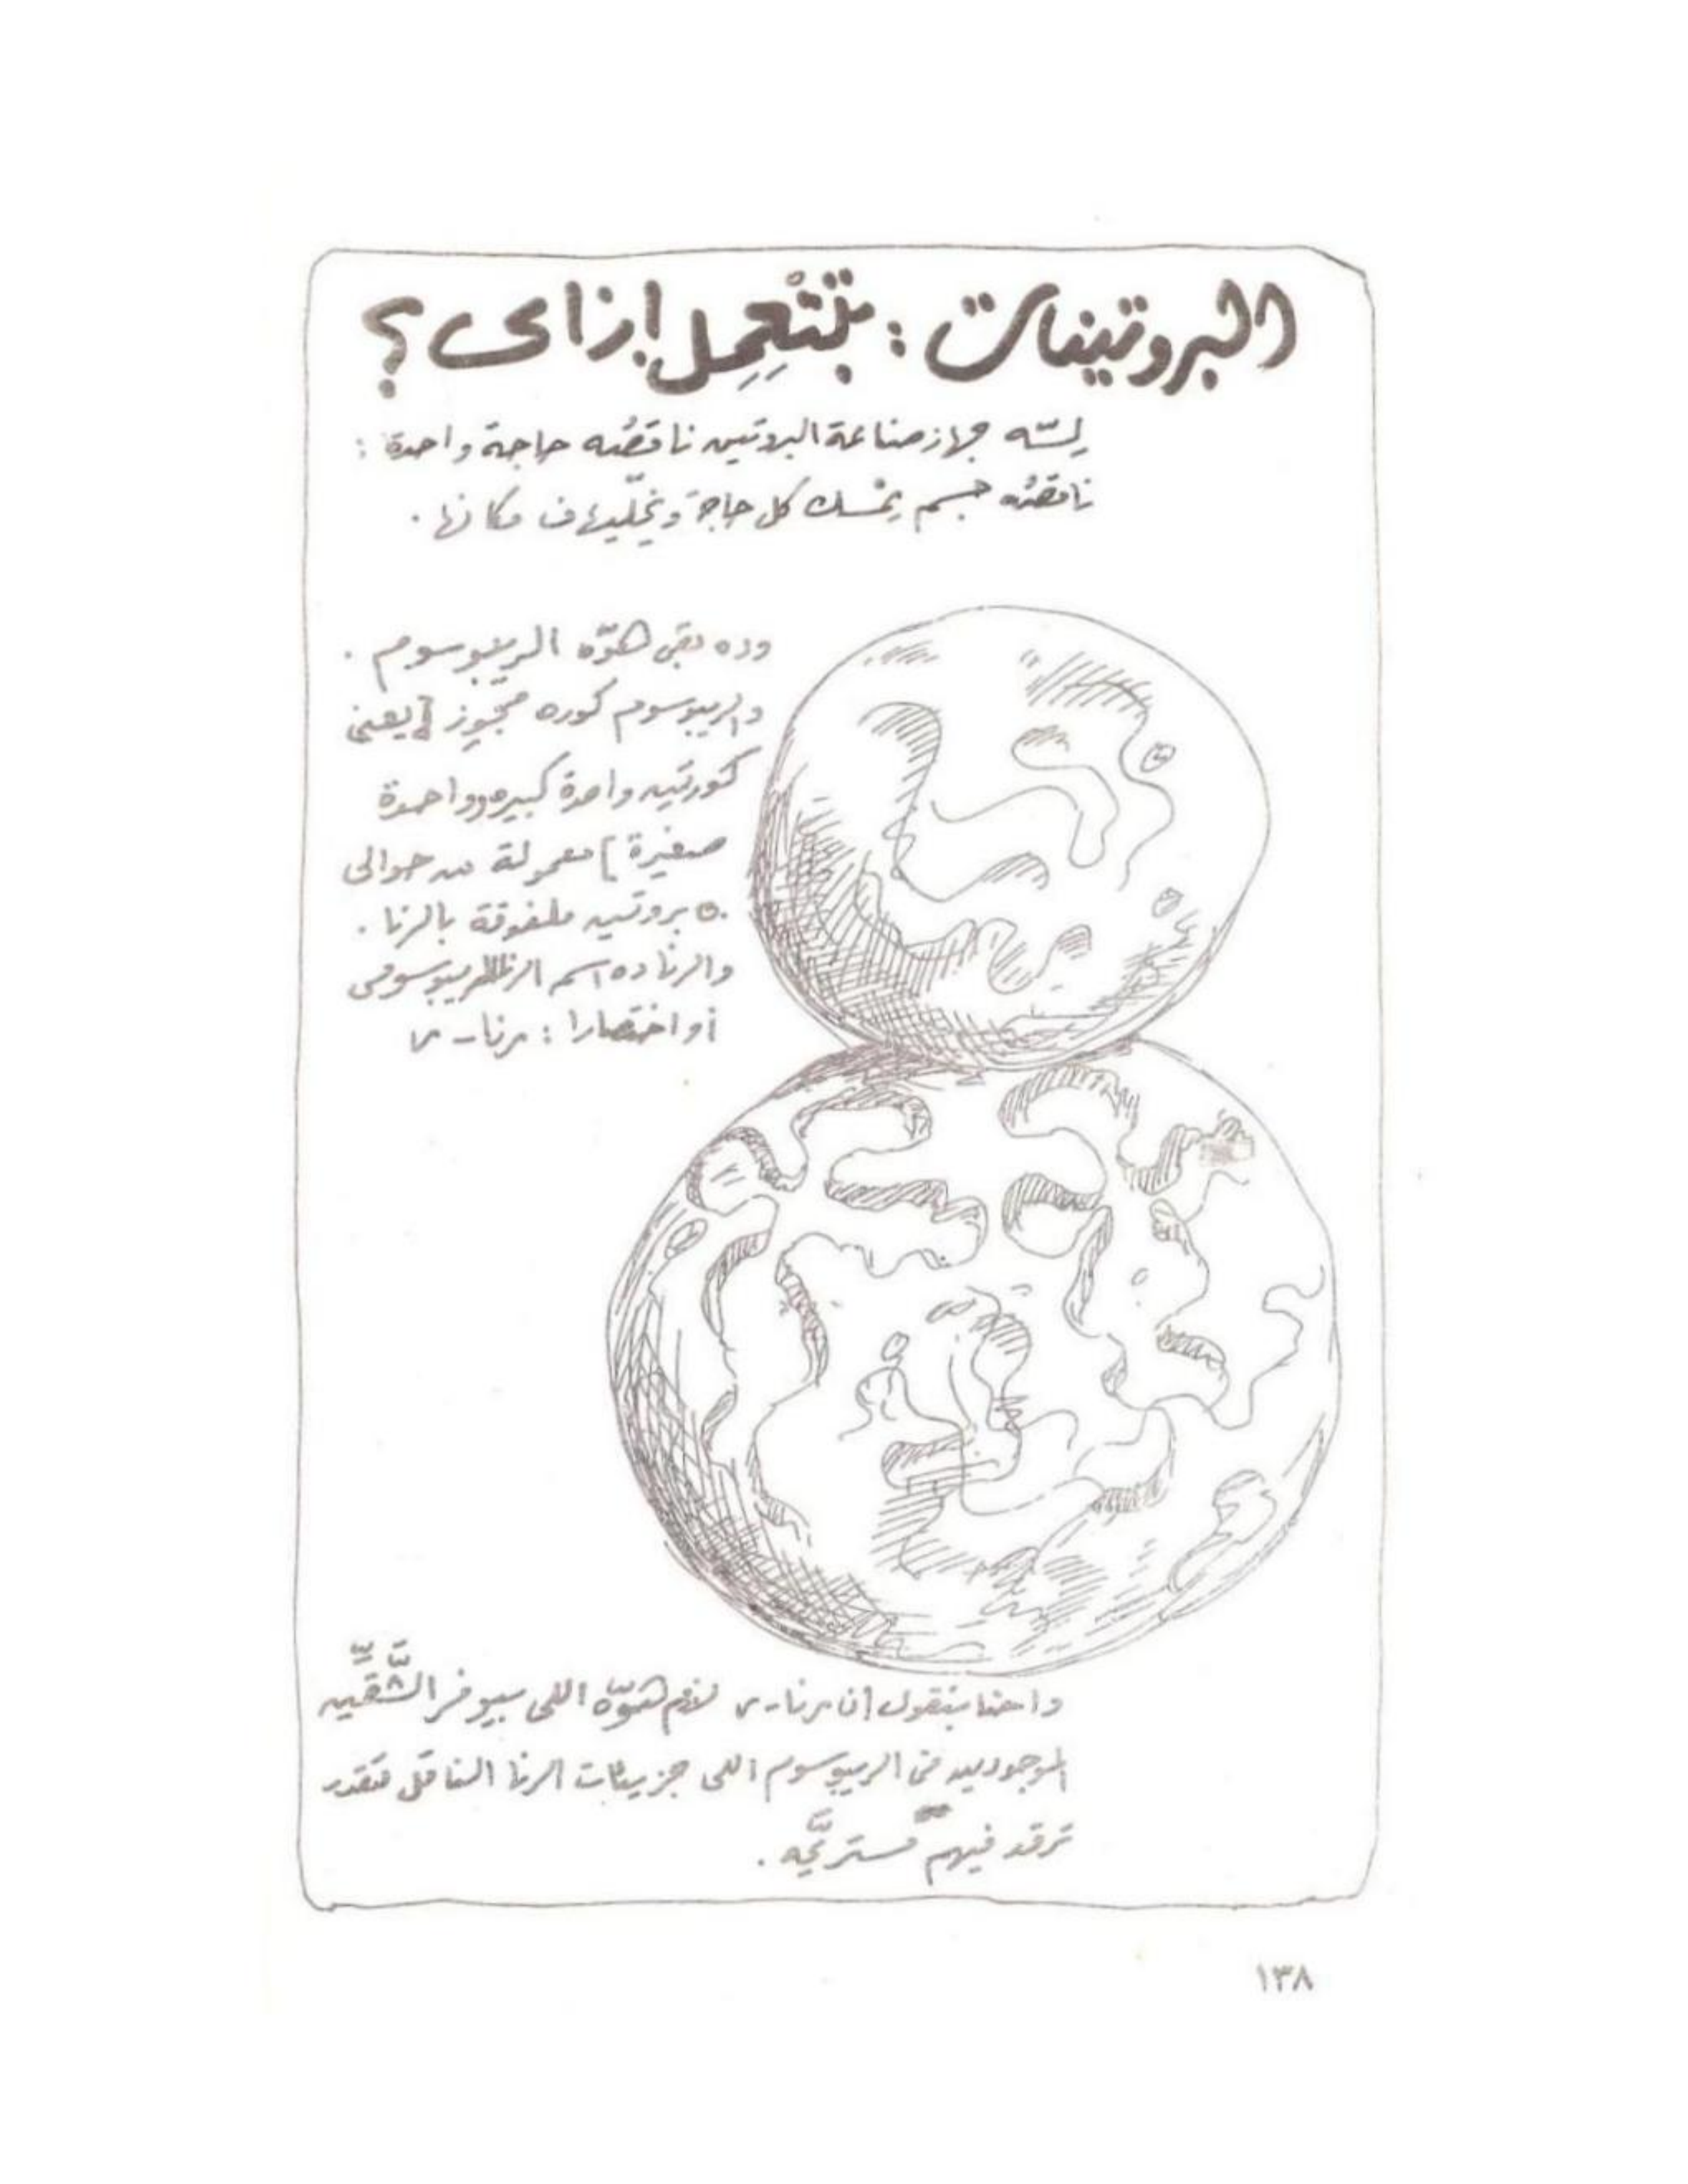 البروتينات : بتتعمل إزاى ؟
لسّه جهاز صناعة البروتين ناقصُه حاجة واحدة :
ناقصُه جسم يمْسك كل حاجة ويخلّيها ف مكانها .
وده بقى هوّه الريبوسوم .
والريبوسوم كوره مجّوِز [ يعنى
كورتين واحدة كبيره وواحدة
صغيرة ] معمولة من حوالى
٥٠ بروتين ملفوفة بالرنا .
والرنا ده اسمه الرنا الريبوسومى
أو اختصارا : رنا - ر
واحنا بنقول إن رنا - ر لازم هوّه اللى بيوفر الشَّقّين
الموجودين فى الريبوسوم اللى جزيئات الرنا الناقل تقدر
ترقد فيهم مستريّحه .
١٣٨